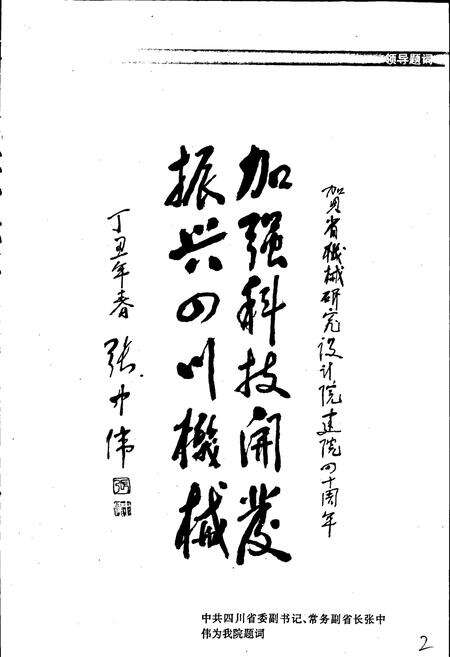 领导题词
贺省機械研究设计院建院四十周年
加强科技開發
振兴四川機械
丁丑年春 张中伟
中共四川省委副书记、常务副省长张中
伟为我院题词
2